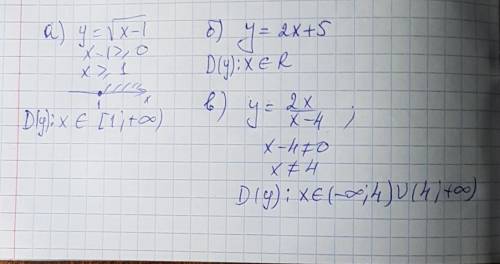 а) y = √x-1
x-1 ≥ 0
x ≥ 1
1 x
D(y): x ∈ [1; +∞)
б) y = 2x+5
D(y): x ∈ R
в) y = 2x/(x-4) ;
x-4 ≠ 0
x ≠ 4
D(y): x ∈ (-∞; 4) ∪ (4; +∞)